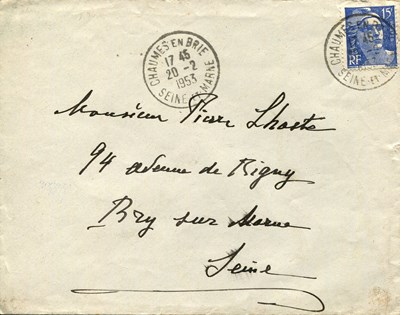 CHAUMES EN BRIE
17 45
20 - 2
1953
SEINE ET MARNE
15F
RF
CHAUMES EN
45
SEINE ET M
Monsieur Pierre Lhoste
94 avenue de Rigny
Bry sur Marne
Seine